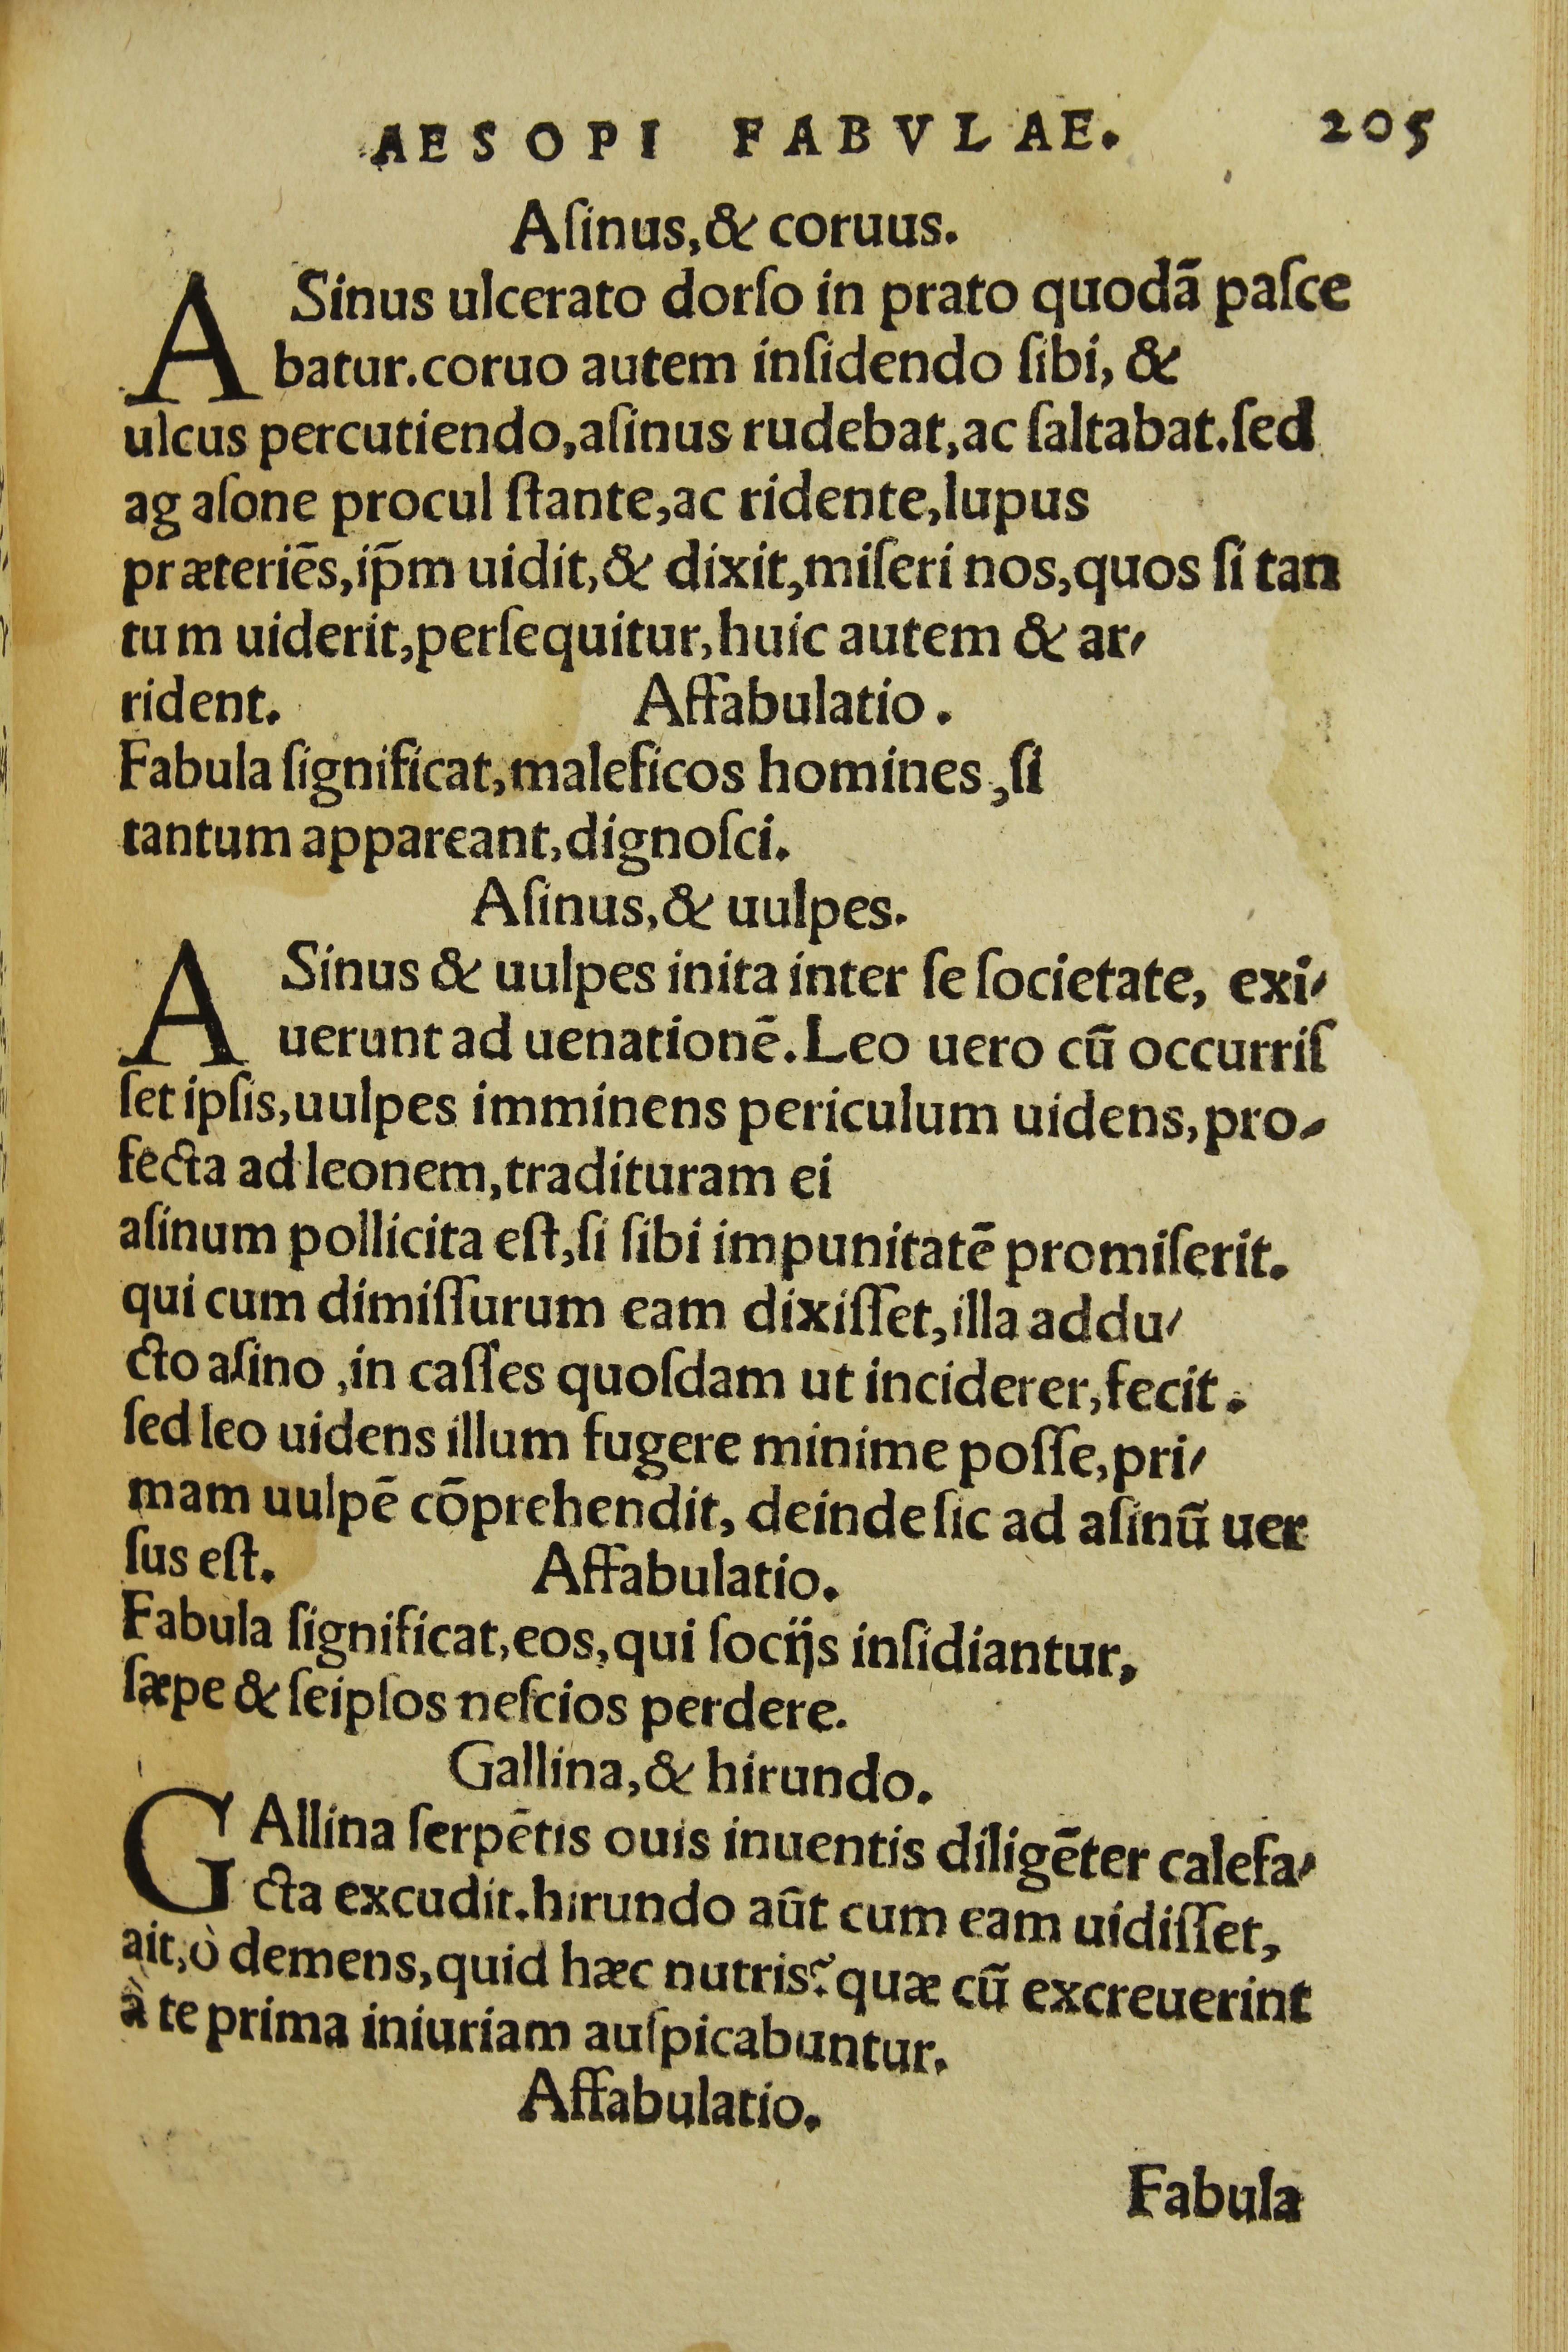 AESOPI FABVLAE. 205
Aſinus,& coruus.
ASinus ulcerato dorſo in prato quodã paſce
batur.coruo autem inſidendo ſibi, &
ulcus percutiendo,aſinus rudebat,ac ſaltabat.ſed
ag aſone procul ſtante,ac ridente,lupus
præteriẽs,ip̃m uidit,& dixit,miſeri nos,quos ſi tan
tum uiderit,perſequitur,huic autem & ar⸗
rident. Affabulatio.
Fabula ſignificat,maleficos homines,ſi
tantum appareant,dignoſci.
Aſinus,& uulpes.
ASinus & uulpes inita inter ſe ſocietate, exi⸗
uerunt ad uenationẽ.Leo uero cũ occurriſ
ſet ipſis,uulpes imminens periculum uidens,pro⸗
fecta ad leonem,tradituram ei
aſinum pollicita eſt,ſi ſibi impunitatẽ promiſerit.
qui cum dimiſſurum eam dixiſſet,illa addu⸗
cto aſino,in caſſes quoſdam ut inciderer,fecit.
ſed leo uidens illum fugere minime poſſe,pri⸗
mam uulpẽ cõprehendit, deinde ſic ad aſinũ uer
ſus eſt. Affabulatio.
Fabula ſignificat,eos,qui ſocijs inſidiantur,
ſæpe & ſeipſos neſcios perdere.
Gallina,& hirundo.
GAllina ſerpẽtis ouis inuentis diligẽter calefa⸗
cta excudit.hirundo aũt cum eam uidiſſet,
ait,ò demens,quid hæc nutris?quæ cũ excreuerint
à te prima iniuriam auſpicabuntur.
Affabulatio.
Fabula